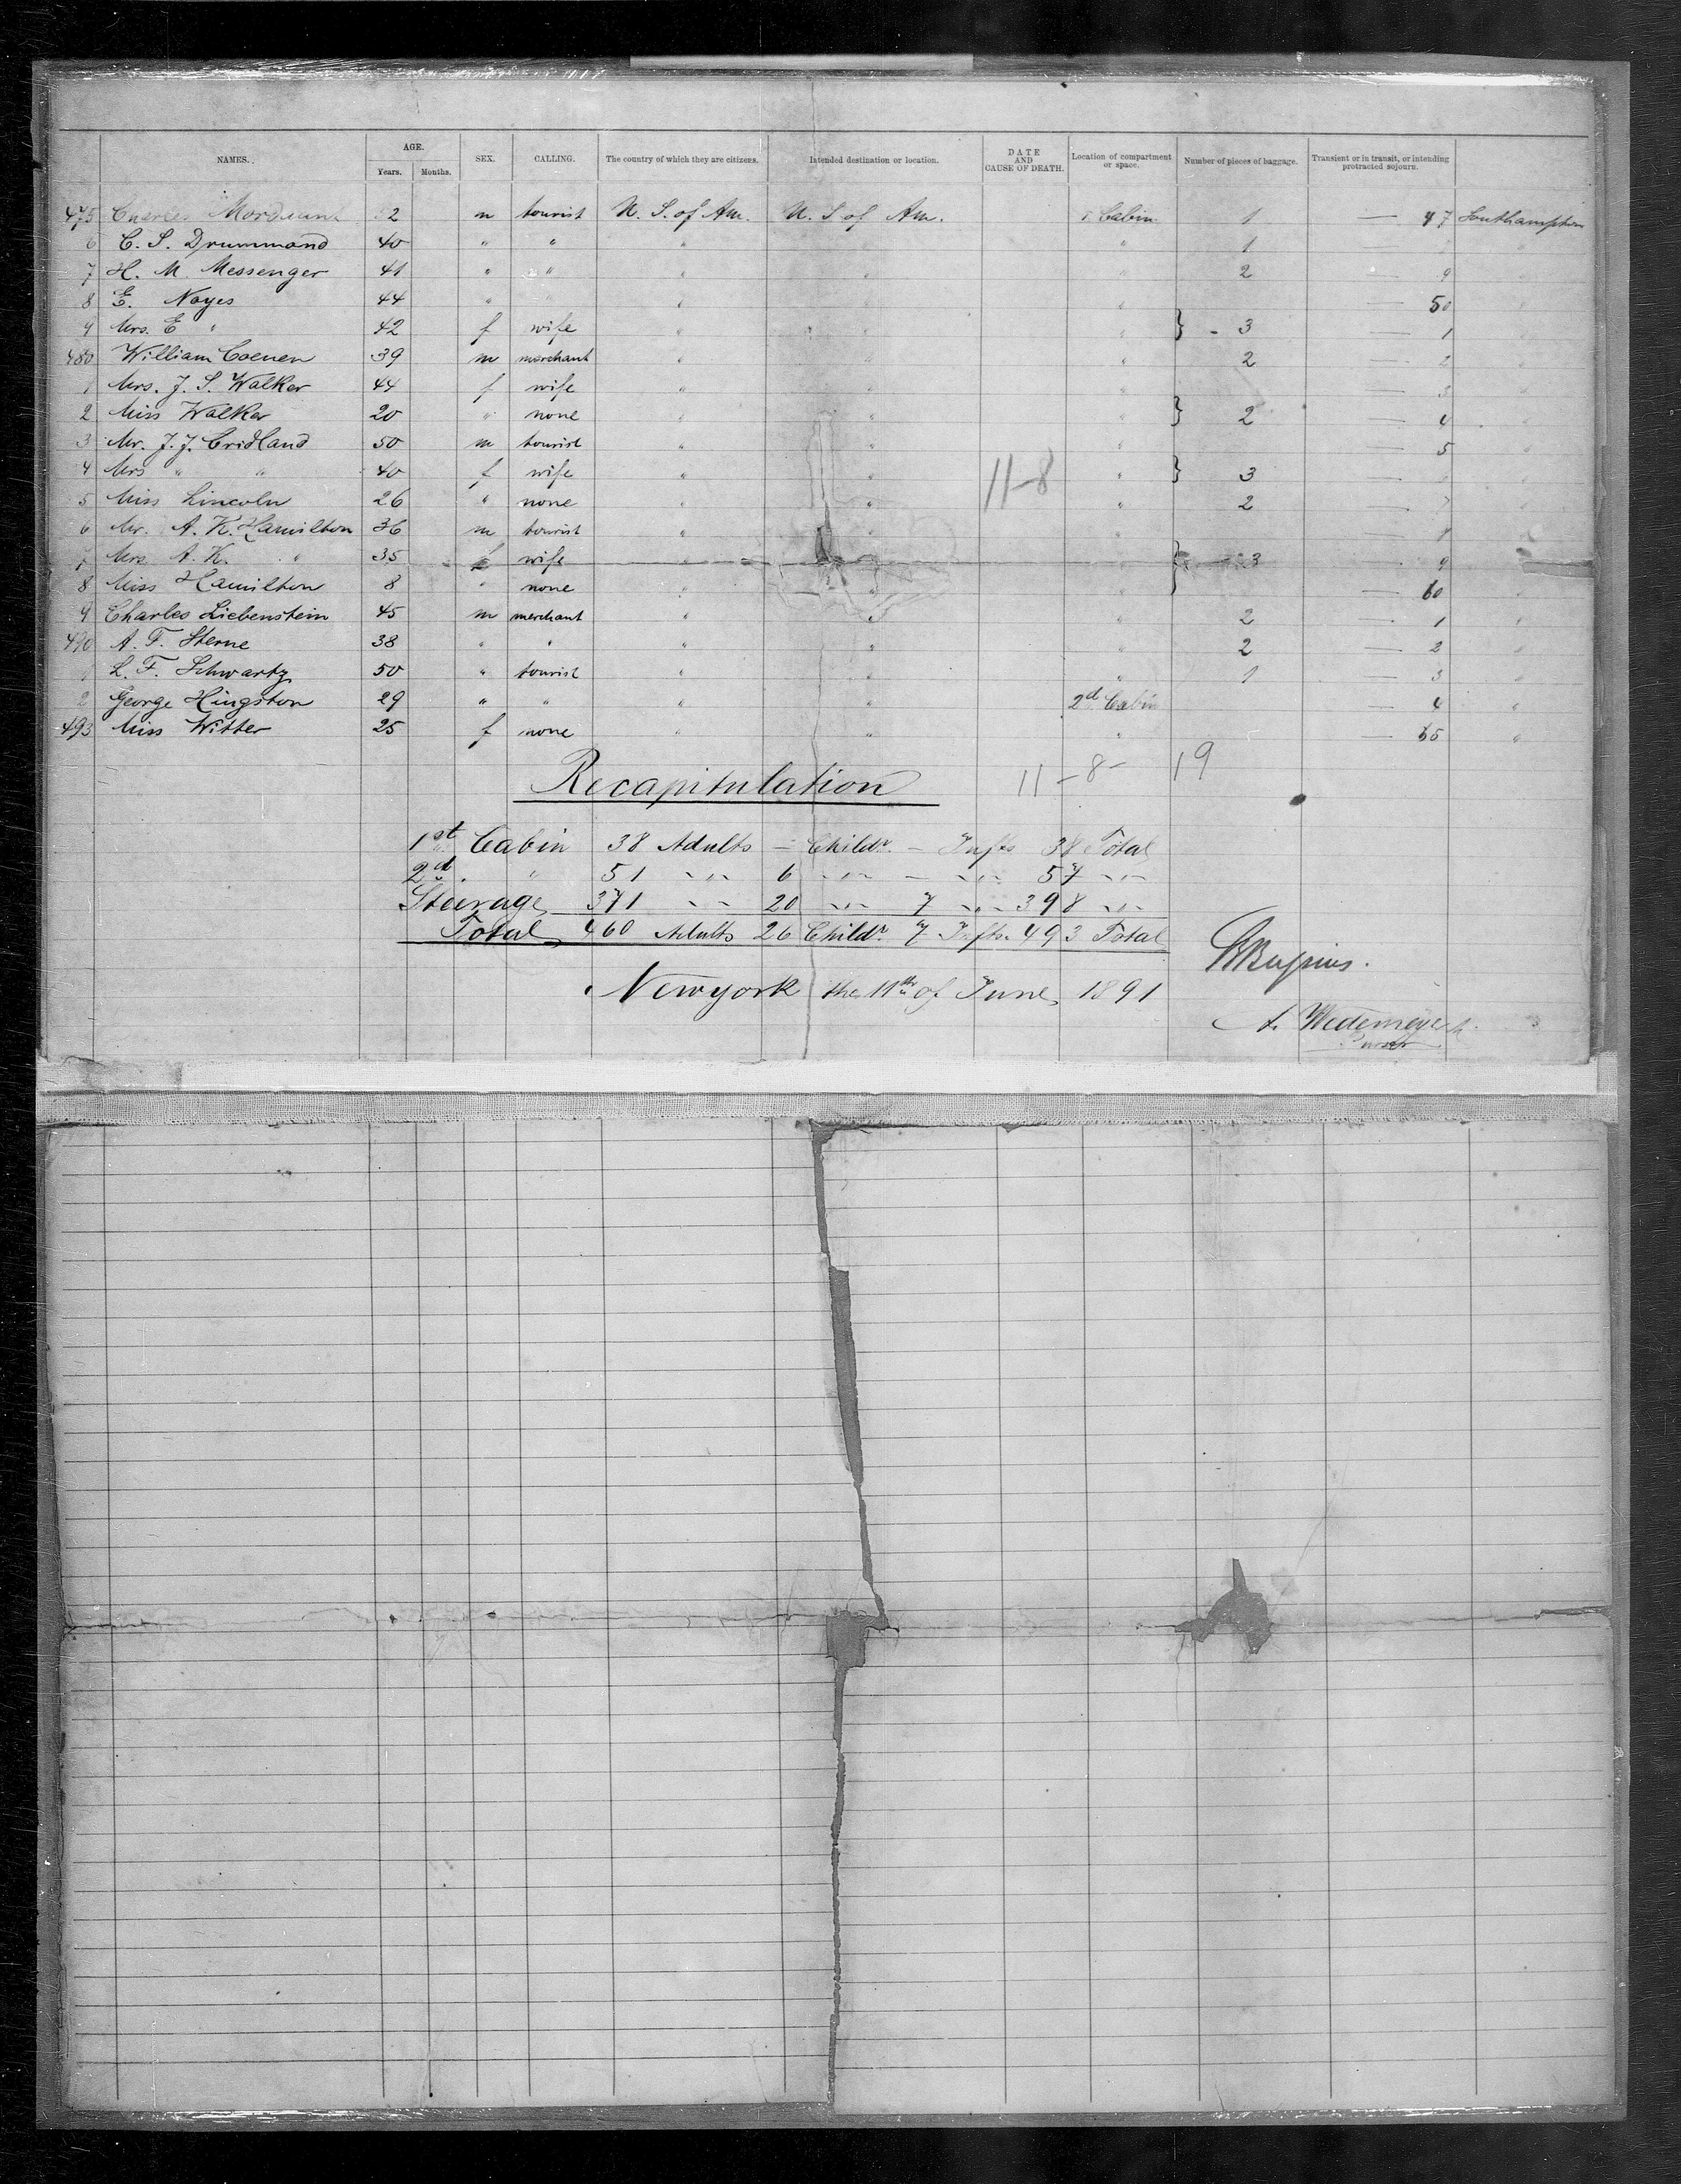 NAMES. AGE. SEX. CALLING. The country of which they are citizens. Intended destination or location. DATE AND CAUSE OF DEATH. Location of compartment or space. Number of pieces of baggage. Transient or in transit, or intending protracted sojourn.
Years. Months.
475 Charles Mordaunt 2 m tourist U. S. of Am. U. S of Am. Cabin 1 — 47 Southampton
6 C. S. Drummond 40 " " " " 1
7 H. M. Messenger 41 " " " " " 2 — 9
8 E. Noyes 44 " " " — 50
9 Mrs. E " 42 f wife " " " } - 3 — 1
480 William Coenen 39 m merchant " " 2 — 2
1 Mrs. J. S. Walker 44 f wife " " " — 3
2 Miss Walker 20 " none " " " } 2 — 4
3 Mr. J. J. Cridland 50 m tourist " " " — 5 "
4 Mrs " " 40 f wife " " 11-8 " } 3 —
5 Miss Lincoln 26 " none " " " 2 — 7
6 Mr. A. K. Hamilton 36 m tourist " "
7 Mrs A. K. " 35 f wife " } 3 — 9
8 Miss Hamilton 8 " none " " — 60
9 Charles Liebenstein 45 m merchant " " " 2 — 1 "
490 A. F. Sterne 38 " " " " " 2 — 2 "
1 L. F. Schwartz 50 " tourist " " " 1 — 3 "
2 George Hingston 29 " " " " 2d Cabin — 4 "
493 Miss Witter 25 f none " " " — 65 "
Recapitulation 11-8- 19
1st Cabin 38 Adults — Childr. — Infts 38 Total
2d " 51 " 6 " — " 57 "
Steerage 371 " 20 " 7 " 398 "
Total 460 Adults 26 Childr. 7 Infts. 493 Total
Newyork the 11th of June 1891
A. Wedemeyer
Purser